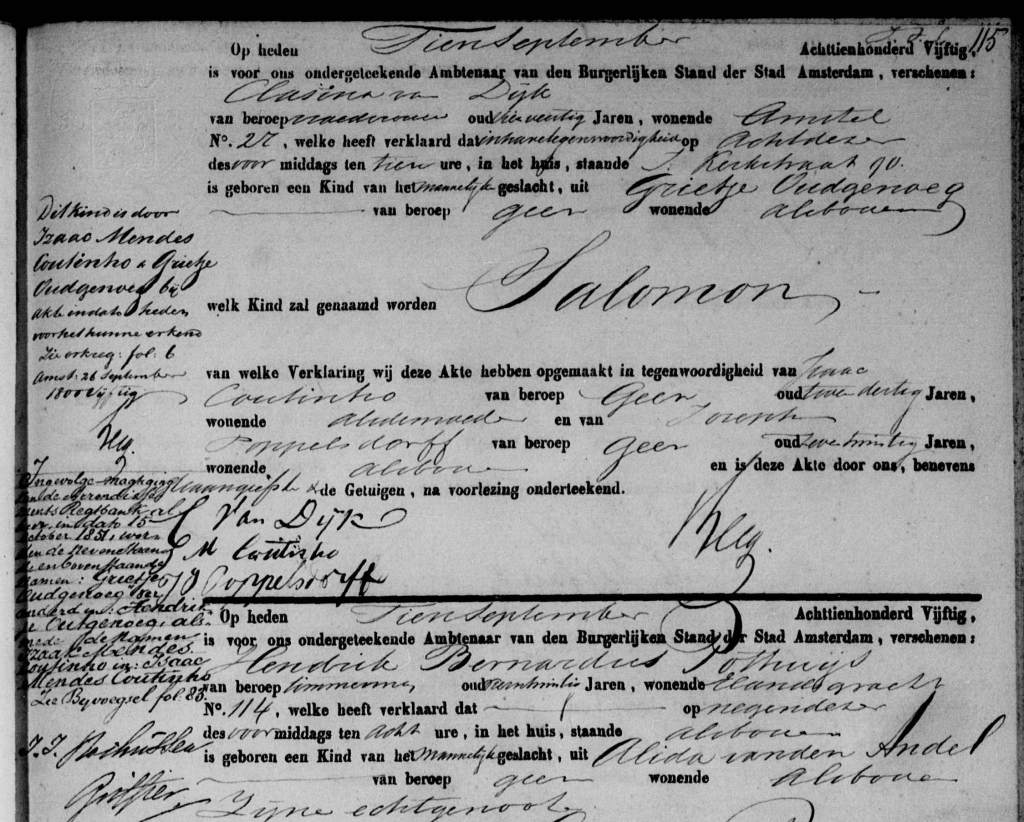 115
Op heden Tien September Achttienhonderd Vijftig,
is voor ons ondergeteekende Ambtenaar van den Burgerlijken Stand der Stad Amsterdam, verschenen:
Clasina van Dijk
van beroep vroedvrouw oud Jaren, wonende Amstel
No. 27, welke heeft verklaard dat in hare tegenwoordigheid op Acht dezer
des voor middags ten tien ure, in het huis, staande Kerkstraat 90.
is geboren een Kind van het mannelijk geslacht, uit Grietje Oudgenoeg
van beroep geen wonende alsboven
welk Kind zal genaamd worden Salomon
van welke Verklaring wij deze Akte hebben opgemaakt in tegenwoordigheid van Izaac
Coutinho van beroep Geen oud twee dertig Jaren,
wonende alsdemoeder en van Joseph
Poppelsdorff van beroep geen oud Jaren,
wonende alsboven en is deze Akte door ons, benevens
de aangeefster & de Getuigen, na voorlezing onderteekend.
C Van Dijk
M Coutinho
J Poppelsdorff
Dit kind is door
Izaac Mendes
Coutinho & Grietje
Oudgenoeg bij
akte in dato heden
voor het hunne erkend
Zie erkreg: fol: 6
Amst: 26 September
1800 vijftig
Ingevolge magtiging
van de Arrondisse
ments Regtbank al
hier, in dato 15
October 1851, wor
den de nevenstaan
de en bovenstaande
namen: Grietje
Oudgenoeg ver
anderd in: Hendrik
je Outgenoeg, als
mede de namen
Izaak Mendes
Coutinho in: Isaac
Mendes Coutinho
Zie Byvoegsel fol: 83.
Griffier
Op heden Tien September Achttienhonderd Vijftig,
is voor ons ondergeteekende Ambtenaar van den Burgerlijken Stand der Stad Amsterdam, verschenen:
Hendrik Bernardus Pothuijs
van beroep timmerman oud Jaren, wonende Elandsgracht
No. 114, welke heeft verklaard dat op negen dezer
des voor middags ten acht ure, in het huis, staande alsboven
is geboren een Kind van het mannelijk geslacht, uit Alida van den Andel
van beroep geen wonende alsboven
Zijne echtgenoot